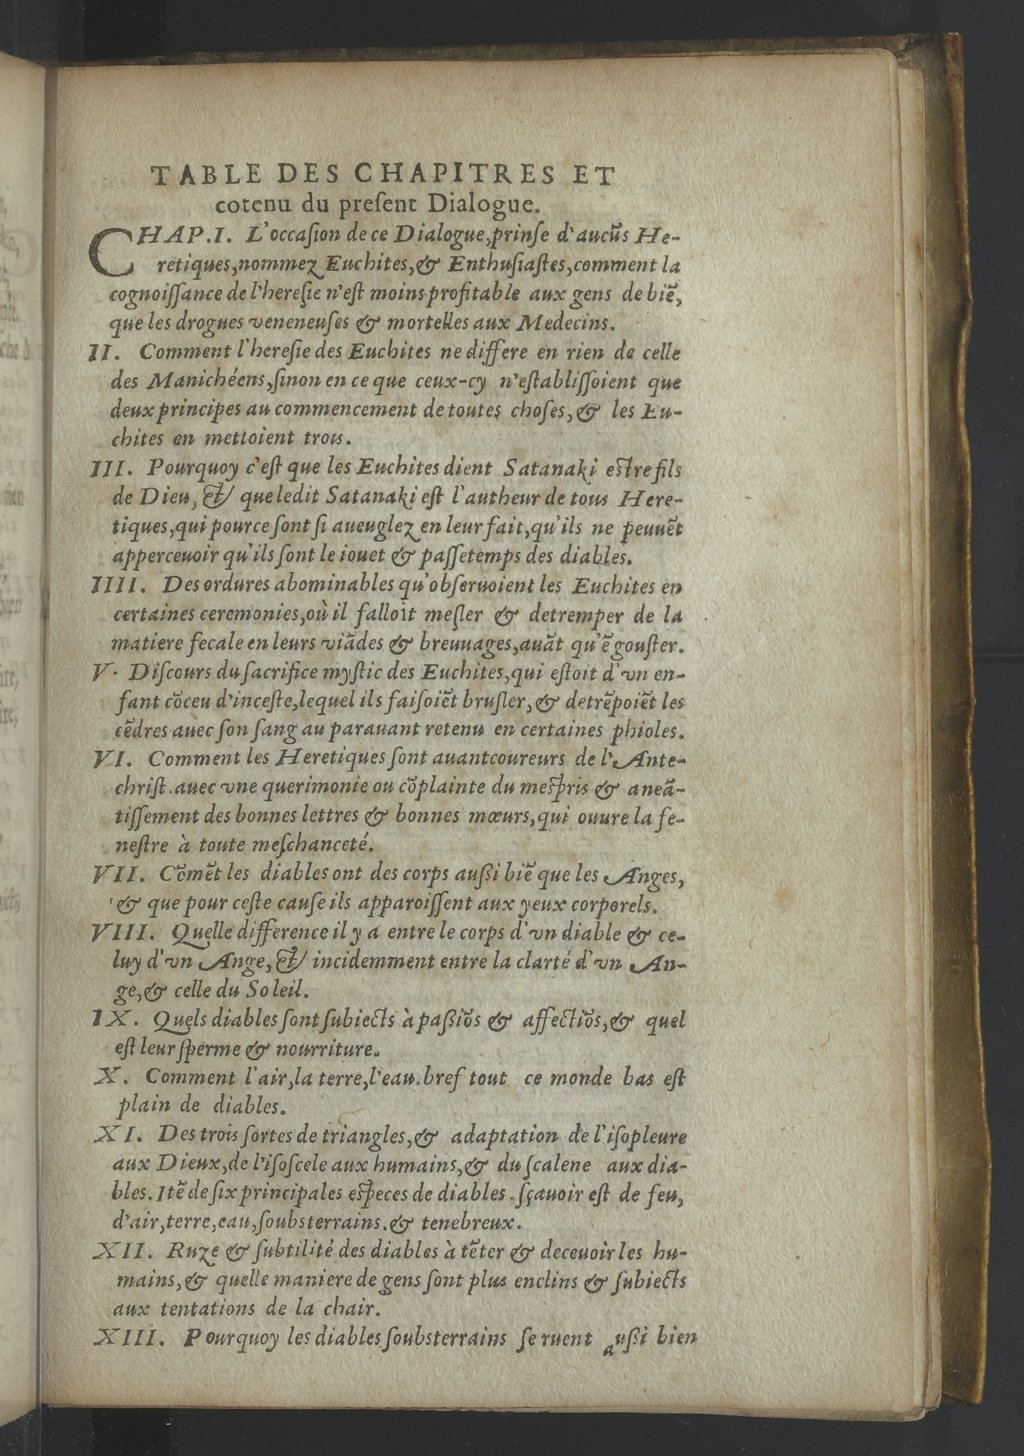 TABLE DES CHAPITRES ET
cotenu du preſent Dialogue.
CHAP.I. L'occaſion de ce Dialogue,prinſe d'aucũs He-
retiques,nommez Euchites,& Enthuſiaſtes,comment la
cognoiſſance de l'hereſie n'eſt moins profitable aux gens de biẽ,
que les drogues veneneuſes & mortelles aux Medecins.
II. Comment l'hereſie des Euchites ne differe en rien de celle
des Manichéens,ſinon en ce que ceux-cy n'eſtabliſſoient que
deux principes au commencement de toutes choſes,& les Eu-
chites en mettoient trois.
III. Pourquoy c'eſt que les Euchites dient Satanaki eſtre fils
de Dieu, & que ledit Satanaki eſt l'autheur de tous Here-
tiques,qui pource ſont ſi aueuglez en leur fait,qu'ils ne peuuẽt
apperceuoir qu'ils ſont le iouet & paſſetemps des diables.
IIII. Des ordures abominables qu'obſeruoient les Euchites en
certaines ceremonies,où il falloit meſler & detremper de la
matiere fecale en leurs viãdes & breuuages,auãt qu'ẽ gouſter.
V. Diſcours du ſacrifice myſtic des Euchites,qui eſtoit d'vn en-
fant cõceu d'inceſte,lequel ils faiſoiẽt bruſler,& detrẽpoiẽt les
cẽdres auec ſon ſang au parauant retenu en certaines phioles.
VI. Comment les Heretiques ſont auantcoureurs de l'Ante-
chriſt.auec vne querimonie ou cõplainte du meſpris & aneã-
tiſſement des bonnes lettres & bonnes mœurs,qui ouure la fe-
neſtre à toute meſchanceté.
VII. Cõmẽt les diables ont des corps auſſi biẽ que les Anges,
& que pour ceſte cauſe ils apparoiſſent aux yeux corporels.
VIII. Quelle difference il y a entre le corps d'vn diable & ce-
luy d'vn Ange,& incidemment entre la clarté d'vn An-
ge,& celle du Soleil.
IX. Quels diables ſont ſubiects à paßiõs & affectiõs,& quel
eſt leur ſperme & nourriture.
X. Comment l'air,la terre,l'eau.bref tout ce monde bas eſt
plain de diables.
XI. Des trois ſortes de triangles,& adaptation de l'iſopleure
aux Dieux,de l'iſoſcele aux humains,& du ſcalene aux dia-
bles.Itẽ de ſix principales eſpeces de diables.ſçauoir eſt de feu,
d'air,terre,eau,ſoubsterrains.& tenebreux.
XII. Ruze & ſubtilité des diables à tẽter & deceuoir les hu-
mains,& quelle maniere de gens ſont plus enclins & ſubiects
aux tentations de la chair.
XIII. Pourquoy les diables ſoubsterrains ſe ruent außi bien